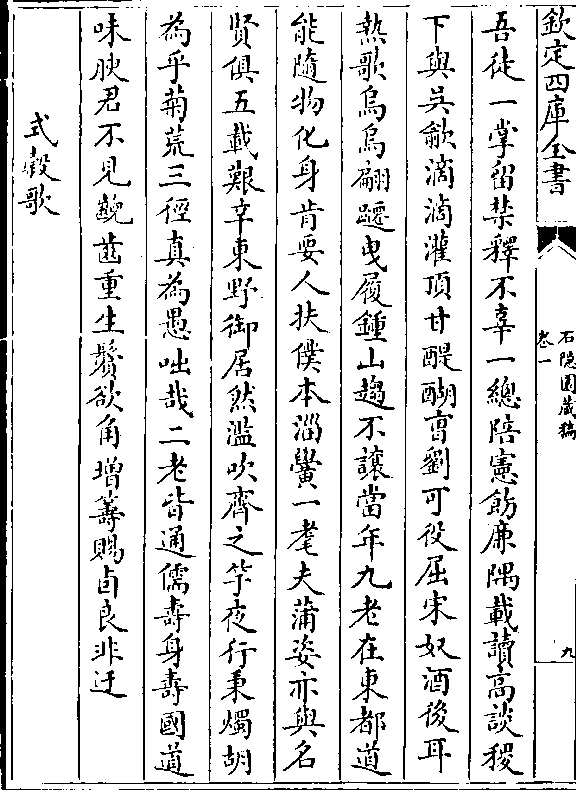 欽定四庫全書
石隱園藏稿
卷一
九
吾徒一掌留禁釋不辜一總陪憲飭廉隅載讀高談稷
下與吳歈滴滴灌頂甘醍醐曺劉可役屈宋奴酒後耳
熱歌烏烏翩躚曳履鍾山趨不讓當年九老在東都道
能隨物化身肯要人扶僕本淄黌一耄夫蒲姿亦與名
賢俱五載艱辛東野御居然濫吹齊之竽夜行秉燭胡
為乎菊荒三徑真為愚咄哉二老皆通儒壽身壽國道
味腴君不見齯齒重生鬢欲角增籌賜卣良非迂
式穀歌